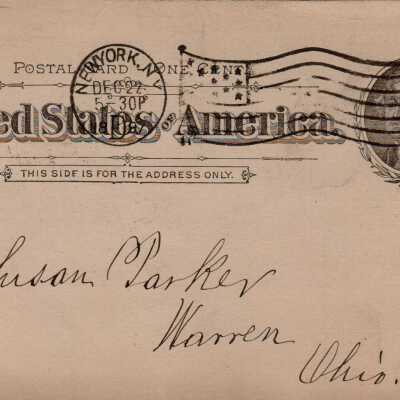 POSTAL CARD ONE CENT
NEW YORK, N.Y.
DEC 22
5-30P
ed States of America.
THIS SIDE IS FOR THE ADDRESS ONLY.
Susan Parker
Warren
Ohio.